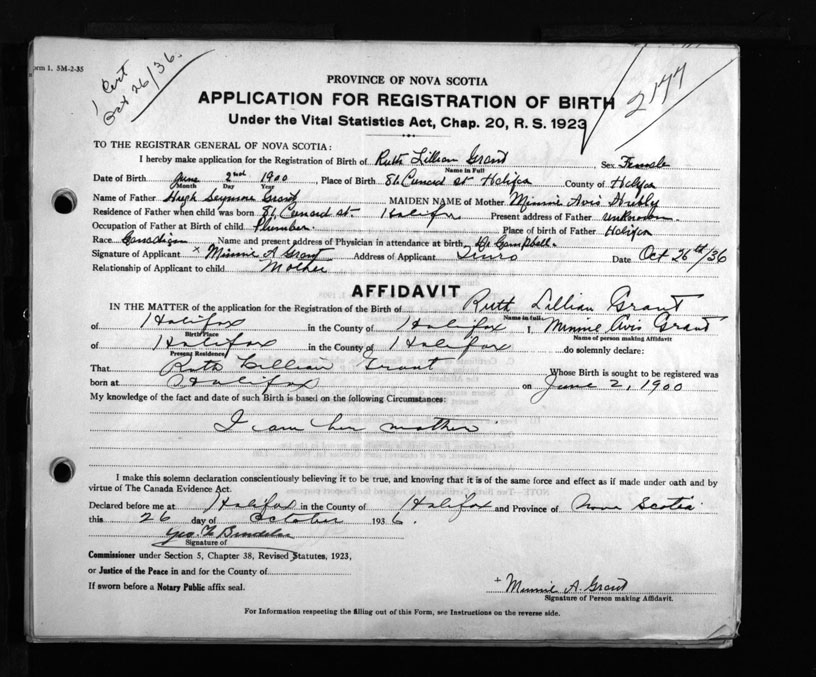 Form 1. 5M-2-35
1 Cert
Oct 26/36.
2177
PROVINCE OF NOVA SCOTIA
APPLICATION FOR REGISTRATION OF BIRTH
Under the Vital Statistics Act, Chap. 20, R. S. 1923
TO THE REGISTRAR GENERAL OF NOVA SCOTIA:
I hereby make application for the Registration of Birth of Ruth Lillian Grant Sex Female
Name in Full
Date of Birth June 2nd 1900, Place of Birth 86 Cunard st Halifax County of Halifax
Month Day Year
Name of Father Hugh Seymore Grant MAIDEN NAME of Mother Minnie Avis
Residence of Father when child was born 86 Cunard st. Halifax Present address of Father unknown.
Occupation of Father at Birth of child Plumber. Place of birth of Father Halifax
Race Canadian Name and present address of Physician in attendance at birth Dr Campbell.
Signature of Applicant x Minnie A Grant Address of Applicant Truro Date Oct 26th/36
Relationship of Applicant to child Mother
AFFIDAVIT
IN THE MATTER of the application for the Registration of the Birth of Ruth Lillian Grant
Name in full
of Halifax in the County of Halifax I, Minnie Avis Grant
Birth Place Name of person making Affidavit
of Halifax in the County of Halifax do solemnly declare:
Present Residence
That Ruth Lillian Grant Whose Birth is sought to be registered was
born at Halifax on June 2, 1900
My knowledge of the fact and date of such Birth is based on the following Circumstances:
I am her mother
I make this solemn declaration conscientiously believing it to be true, and knowing that it is of the same force and effect as if made under oath and by
virtue of The Canada Evidence Act.
Declared before me at Halifax in the County of Halifax and Province of Nova Scotia
this 26 day of October 1936.
Geo.
Signature of
Commissioner under Section 5, Chapter 38, Revised Statutes, 1923,
or Justice of the Peace in and for the County of
If sworn before a Notary Public affix seal.
+ Minnie A. Grant
Signature of Person making Affidavit.
For Information respecting the filling out of this Form, see Instructions on the reverse side.